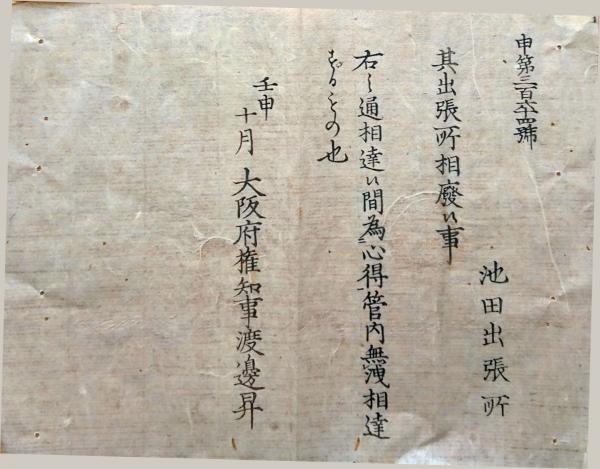 申第三百六十四號
池田出張所
其出張所相廢候事
右之通相達候間為心得管内無洩相達
するもの也
壬申
十月 大阪府権知事渡邊昇